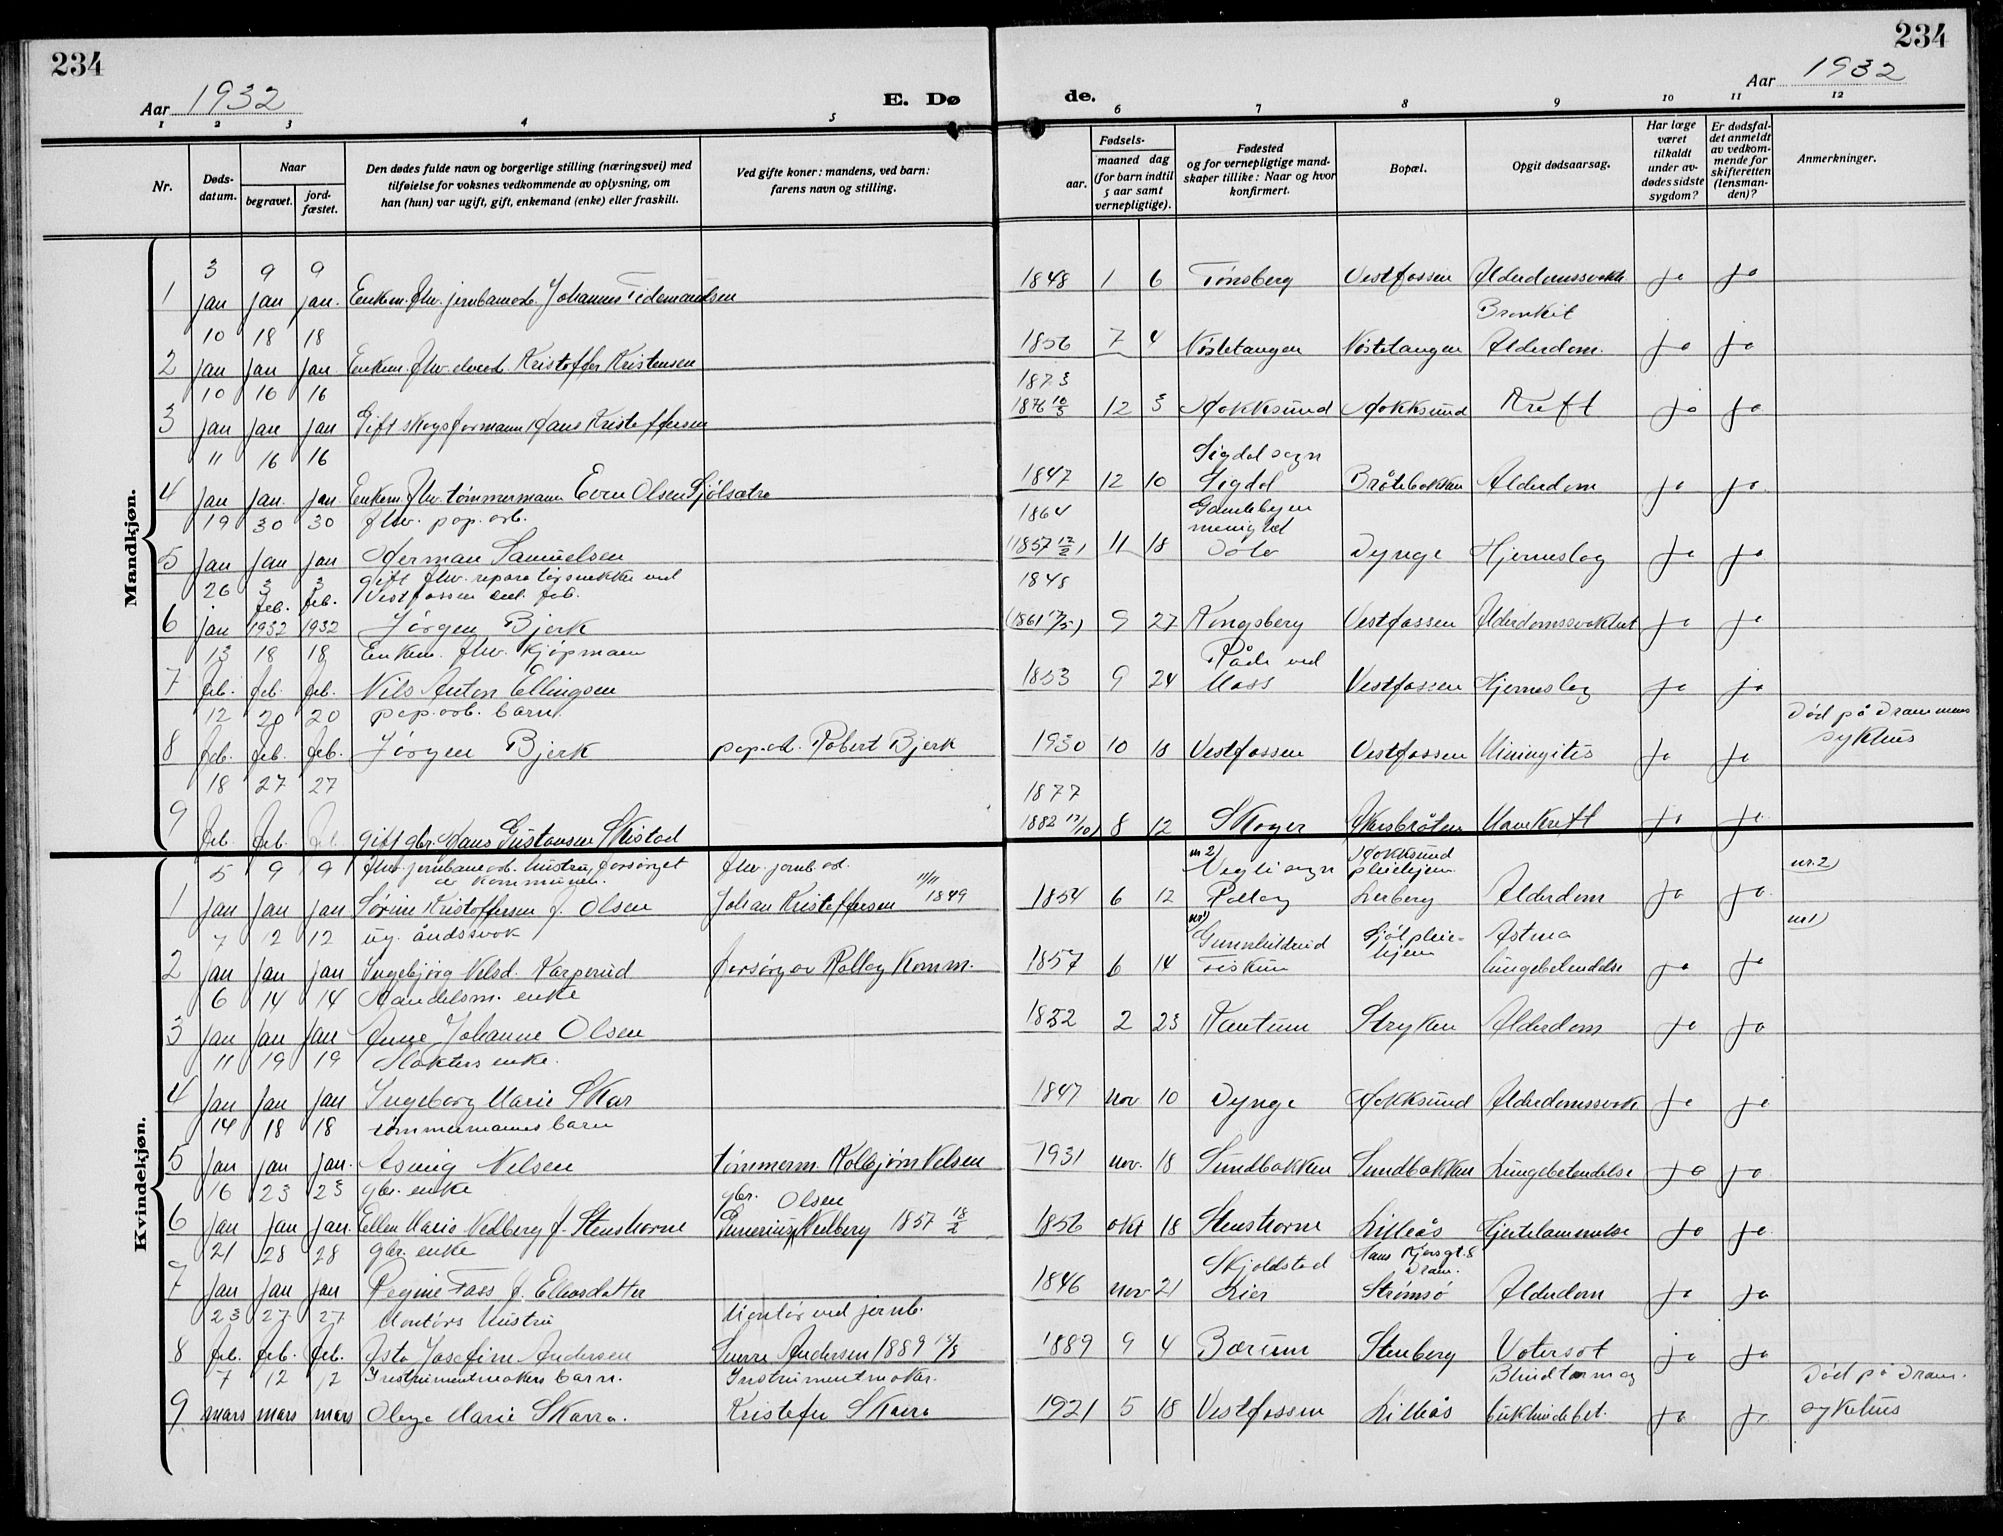 234
234
Aar 1932
E. Dø
de.
Aar 1932
1 2 3 4 5 6 7 8 9 10 11 12
Nr.
Døds-datum.
Naar
begravet.
jord-fæstet.
Den dødes fulde navn og borgerlige stilling (næringsvei) med
tilføielse for voksnes vedkommende av oplysning, om
han (hun) var ugift, gift, enkemand (enke) eller fraskilt.
Ved gifte koner: mandens, ved barn:
farens navn og stilling.
aar.
Fødsels-
maaned dag
(for barn indtil
5 aar samt
vernepligtige).
Fødested
og for vernepligtige mand-
skaper tillike: Naar og hvor
konfirmert.
Bopæl.
Opgit dødsaarsag.
Har læge
været
tilkaldt
under av-
dødes sidste
sygdom?
Er dødsfal-
det anmeldt
av vedkom-
mende for
skifteretten
(lensman-
den)?
Anmerkninger.
Mandkjøn.
1 3 jan 9 jan 9 jan. Enkem. fhv. jernbanearb. Johannes Tidemandsen 1848 1 6 Tønsberg Vestfossen Alderdomssvakh. Bronkit ja ja
2 10 jan 18 jan 18 jan. Enkem. fhv. elvearb. Kristoffer Kristensen 1856 7 4 Nøstetangen Nøstetangen Alderdom. ja ja
3 10 jan 16 jan 16 jan Gift skogsformann Hans Kristoffersen 1873 1876 10/3 12 3 Hokksund Hokksund Kreft ja ja
4 11 jan 16 jan. 16 jan Enkem. fhv. tømmermann Even Olsen Sjølsætra 1847 12 10 Sigdal sogn Sigdal Bråtebakken Alderdom ja ja
5 19 jan 30 jan 30 jan fhv. pap. arb. Herman Samuelsen 1864 (1857 12/2) 11 18 Gamlebyen menighet Oslo Dynge Hjerneslag ja ja
6 26 jan 3 feb. 1932 3 feb. 1932 gift fhv. reparatørsnekker ved Vestfossen cel. fab. Jørgen Bjerk 1848 (1861 17/5) 9 27 Kongsberg Vestfossen Alderdomssvakhet ja ja
7 13 feb. 18 feb. 18 feb. Enkem. fhv. kjøpmann Nils Anton Ellingsen 1853 9 24 Råde ved Moss Vestfossen Hjerneslag ja ja
8 12 feb. 20 feb. 20 feb. pap. arb. barn. Jørgen Bjerk pap. arb. Robert Bjerk 1930 10 18 Vestfossen Vestfossen Miningitis ja ja Død på Drammens sykhus
9 18 feb. 27 feb. 27 feb gift gbr. Hans Gustavsen Skistad 1877 1882 17/10) 8 12 Skoger Mavekreft ja ja
Kvindekjøn.
1 5 jan 9 jan 9 jan fhv. jernbanearb. hustru, forsørget av kommunen. Sørine Kristoffersen f. Olsen fhv. jernb. arb. Johan Kristoffersen 11/11 1849 1854 6 12 nr 2) Vegli sogn Rollag Hokksund pleiehjem Lerberg Alderdom ja ja nr. 2)
2 7 jan 12 jan 12 jan ug. åndssvak Ingebjørg Nilsd. Karperud forsørg av Rollag Komm. 1857 6 14 nr 1) Gunnhildrud Fiskum Sjøl pleie-hjem Astma lungebetendelse ja ja nr 1)
3 6 jan 14 jan 14 jan Handelsm. enke Anne Johanne Olsen 1832 2 23 Kantum Stryken Alderdom ja ja
4 11 jan 19 jan 19 jan Slakters enke. Ingeborg Marie Skar 1847 nov 10 Dynge Hokksund Alderdomssvak ja ja
5 14 jan 18 jan 18 jan. tømmermanns barn Asmig Nilsen tømmerm. Kolbjørn Nilsen 1931 nov. 18 Sundbakken Sundbakken Lungebetendelse ja ja
6 16 jan 23 jan 23 jan. gbr. enke Ellen Maria Nedberg f. Stenshorne gbr. Olsen Nedberg 1857 18/2 1856 okt 18 Stenshorne Lilleås Hjertelammelse ja ja
7 21 jan 28 jan 28 jan gbr. enke Regine Foss f. Ellevsdatter 1846 nov 21 Skjoldstad Lier Hans Kjærsgt. 8 Dram. Strømsø Alderdom ja ja
8 23 feb. 27 feb. 27 feb. Montørs hustru Asta Josefine Andersen Montør ved jernb. Sverre Andersen 1889 1889 9 4 Bærum Stenberg Vatersot ja ja
9 7 mars 12 mars 12 mars Instrumentmakers barn. Olaga Marie Skarra. Instrumentmaker. Kristofer Skarra 1921 5 18 Vestfossen Lilleås Blindtarm og bukhindebet. ja ja Død på Dram. sykehus